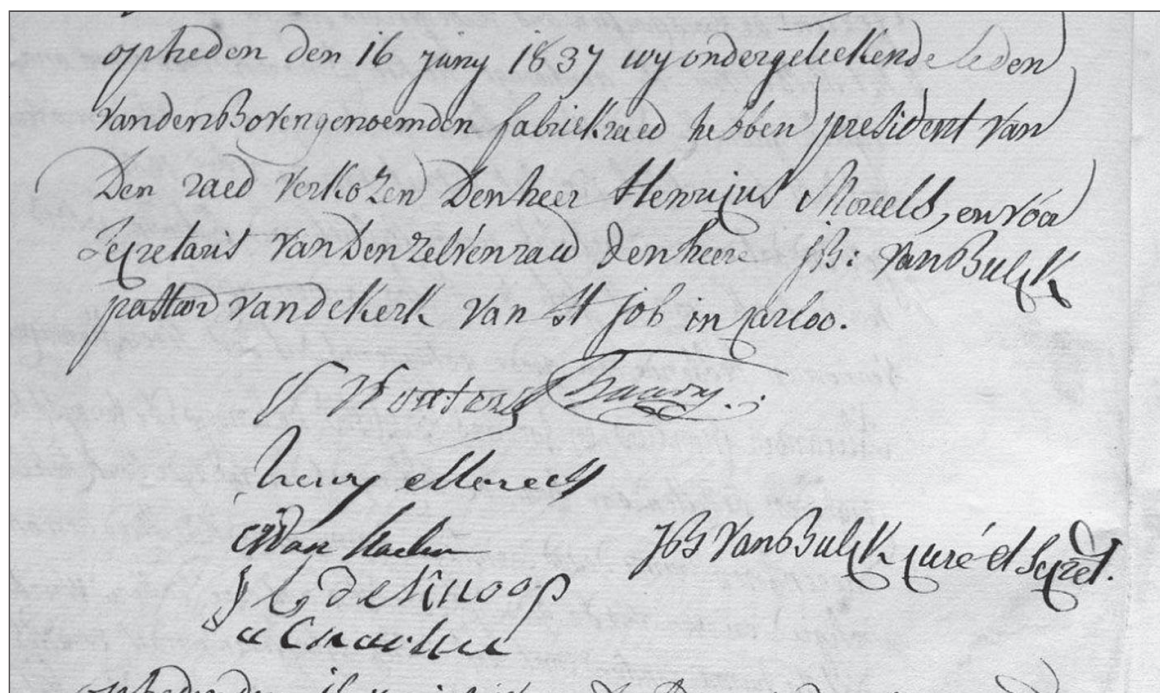 opheden den 16 juny 1837 wy ondergeteekende leden
van den Bovengenoemden fabriekraed hebben president van
Den raed verkozen Den heer Henricus Moreels, en voor
Secretaris van Den zelven raed den heere JB: Van Bulck
pastoor van de kerk van St Job in Carloo.
P Wouters
henry Moreels
JBt Van Bulck curé et Secret.
J C De Knoop